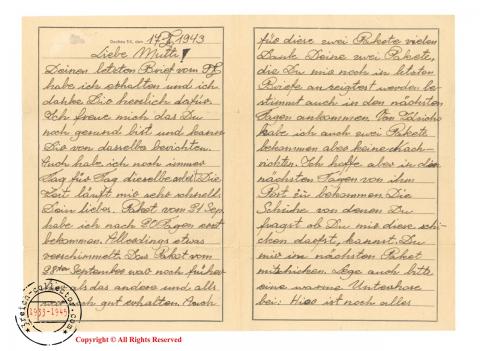 Dachau 3K, den 17.X.1943
Liebe Mutti!
Deinen letzten Brief vom
habe ich erhalten und ich
danke Dir herzlich dafür.
Ich freue mich das Du
noch gesund bist und kann
Dir von dasselbe berichten.
Auch habe ich noch immer
Tag für Tag dieselbe Die
Zeit läuft mir sehr schnell.
Dein liebes Paket vom 21 Sep.
habe ich nach 20 Tagen erst
bekommen. Allerdings etwas
verschimmelt. Das Paket vom
28ten September war noch früher
als das andere und alles
gut erhalten. Auch
für diese zwei Pakete vielen
Dank. Deine zwei Pakete,
die Du mir noch in letzten
Briefe an zeigtest werden be-
stimmt auch in den nächsten
Tagen ankommen. Von
habe ich auch zwei Pakete
bekommen aber keine Nach-
richten. Ich hoffe aber in den
nächsten Tagen von ihm
Post zu bekommen. Die
Schuhe von denen Du
fragst ob Du mir diese schi-
cken darfst, kannst Du
mir im nächsten Paket
mitschicken. Lege auch bitte
eine warme Unterhose
bei. Hier ist noch alles
treich-collector.com
1933-1945
Copyright © All Rights Reserved